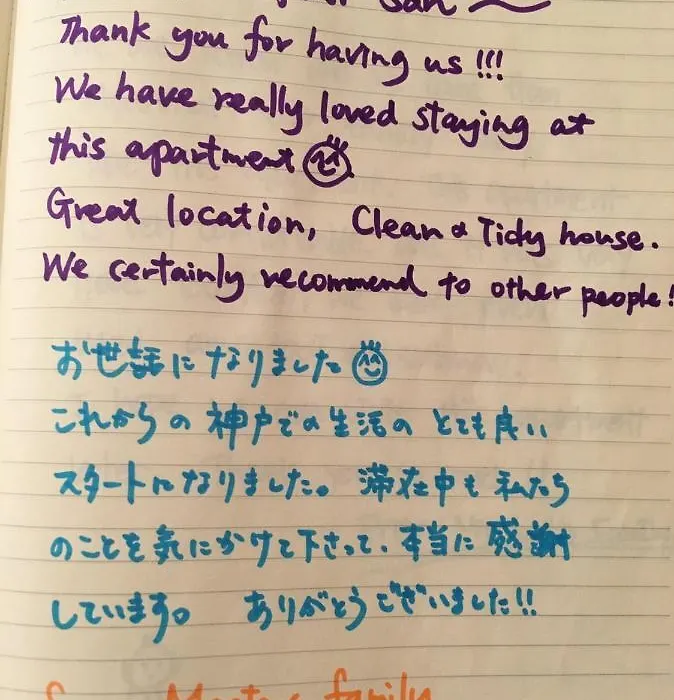 San
Thank you for having us!!!
We have really loved staying at
this apartment
Great location, Clean & Tidy house.
We certainly recommend to other people!
お世話になりました
これからの神戸での生活の とても良い
スタートになりました。 滞在中も 私たち
のことを気にかけて下さって、本当に 感謝
しています。 ありがとうございました!!
family